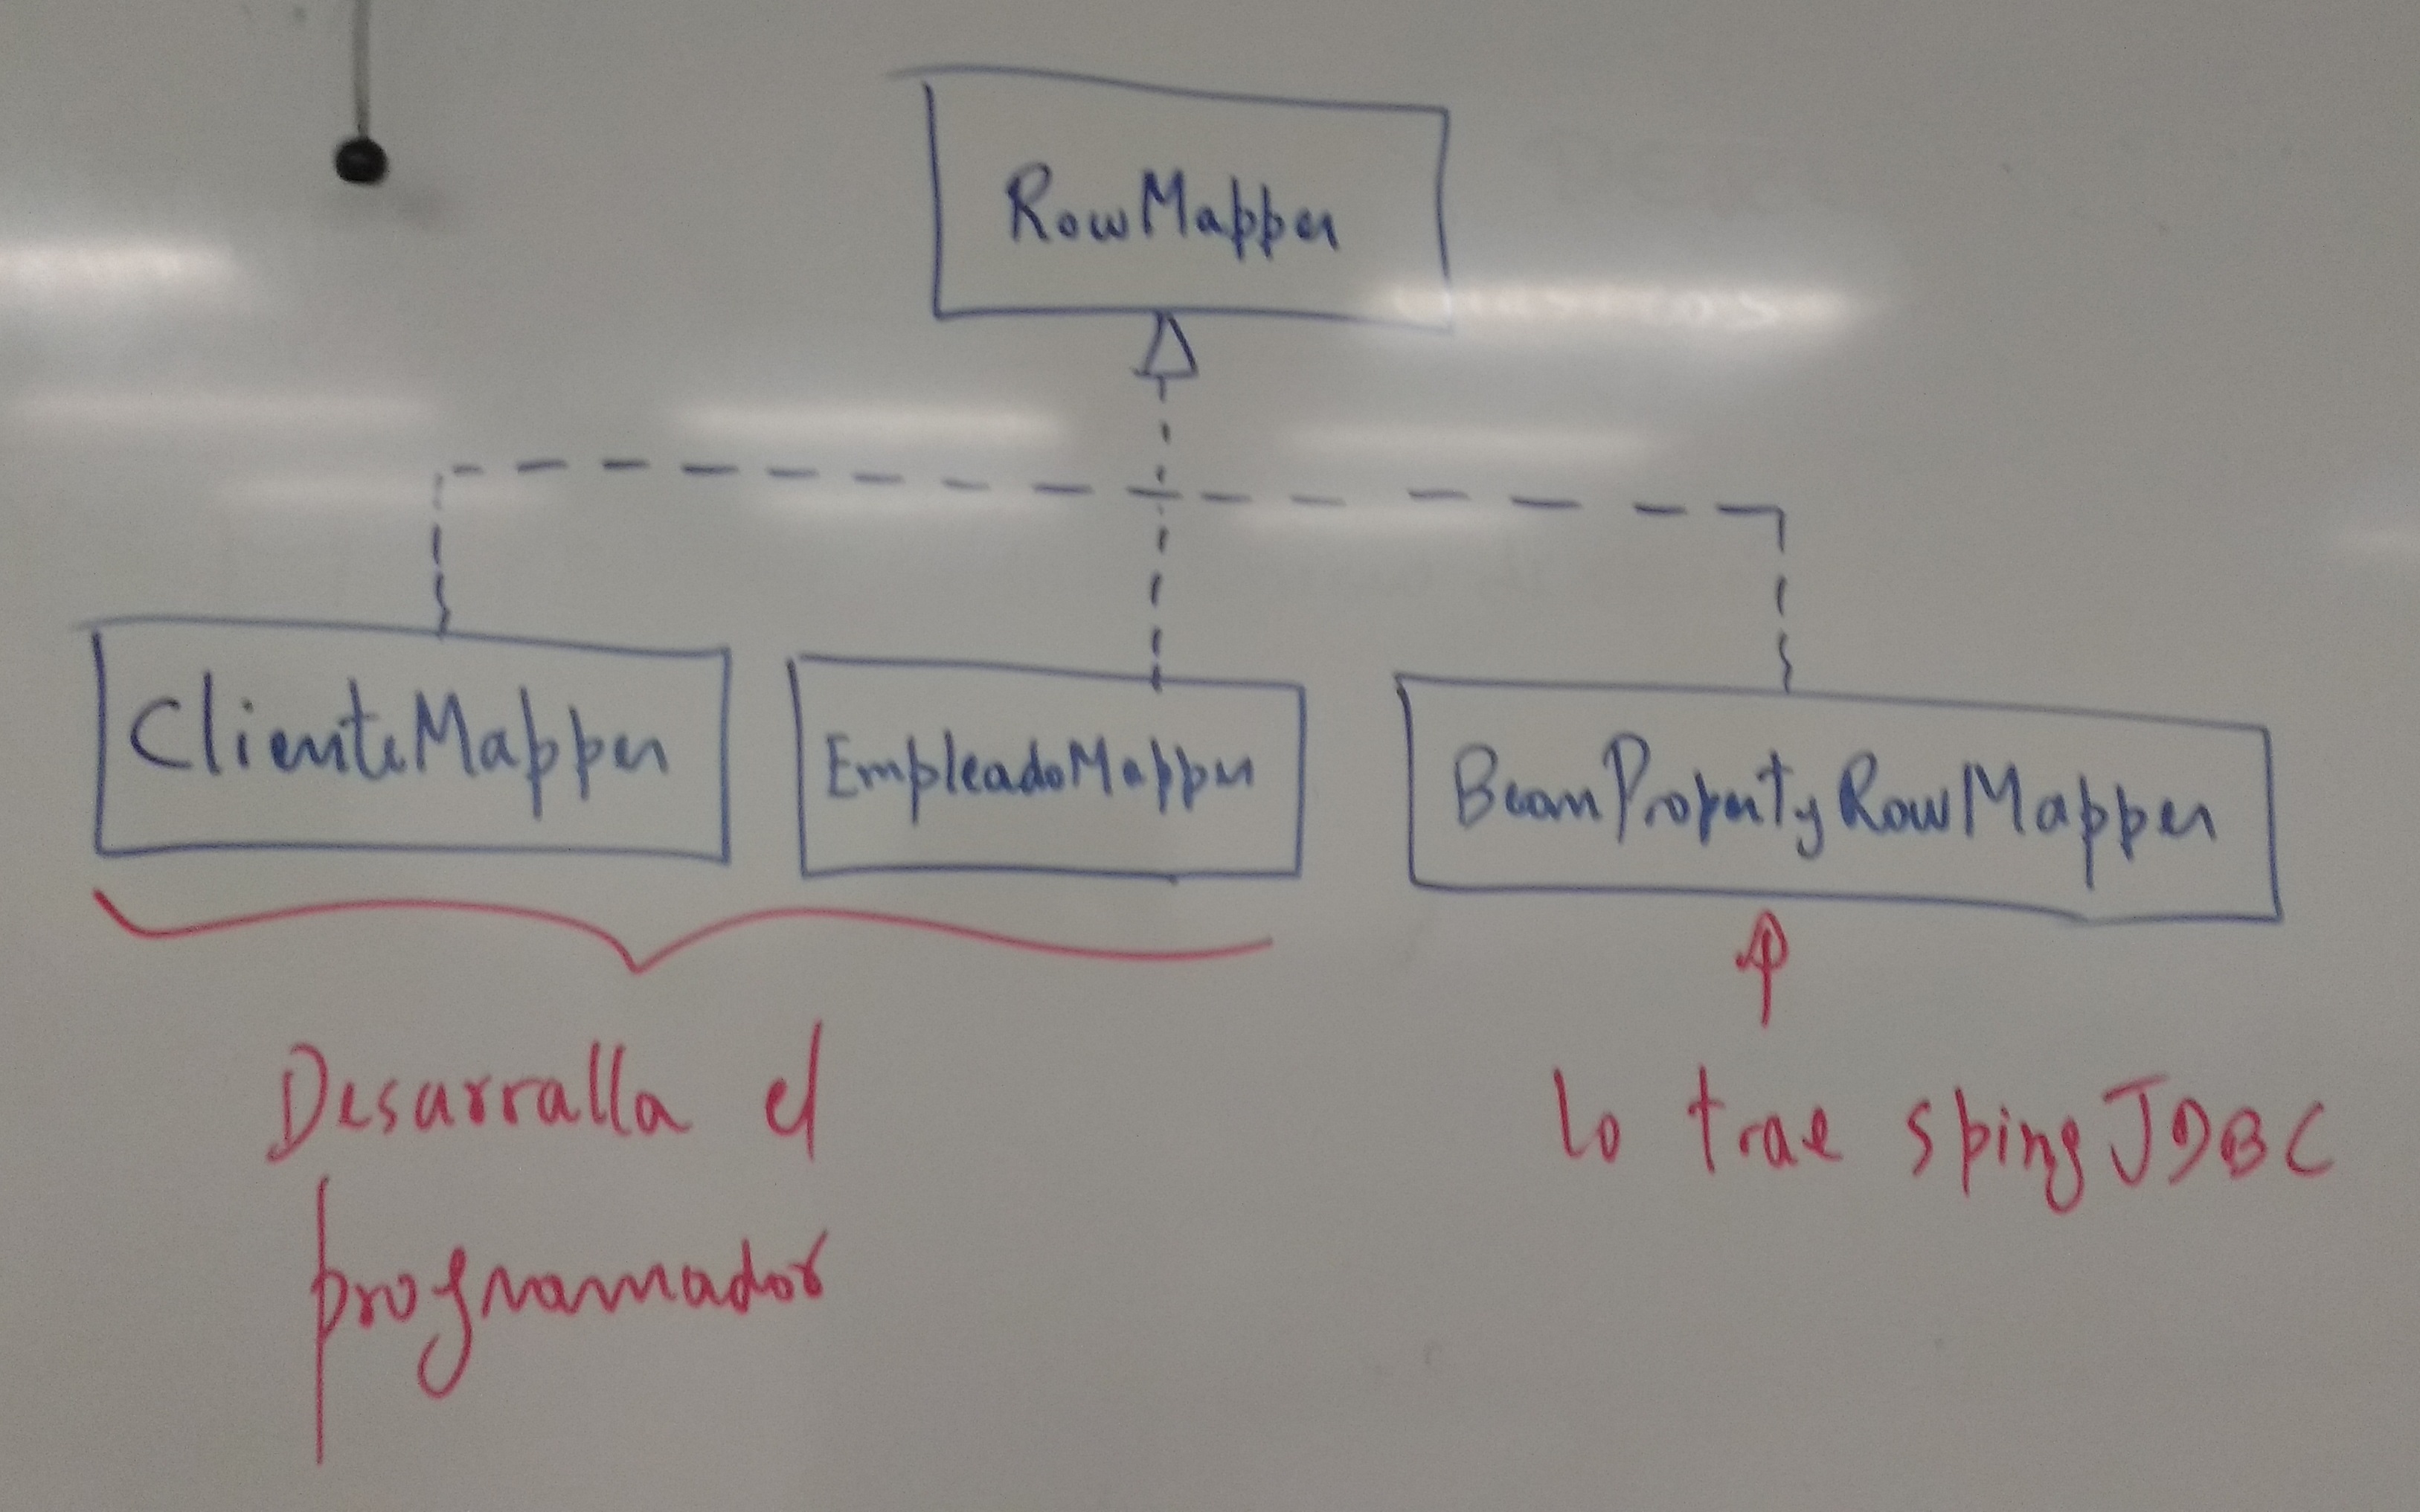 RowMapper
ClienteMapper
EmpleadoMapper
BeanPropertyRowMapper
Desarralla el
programador
lo trae spingJDBC